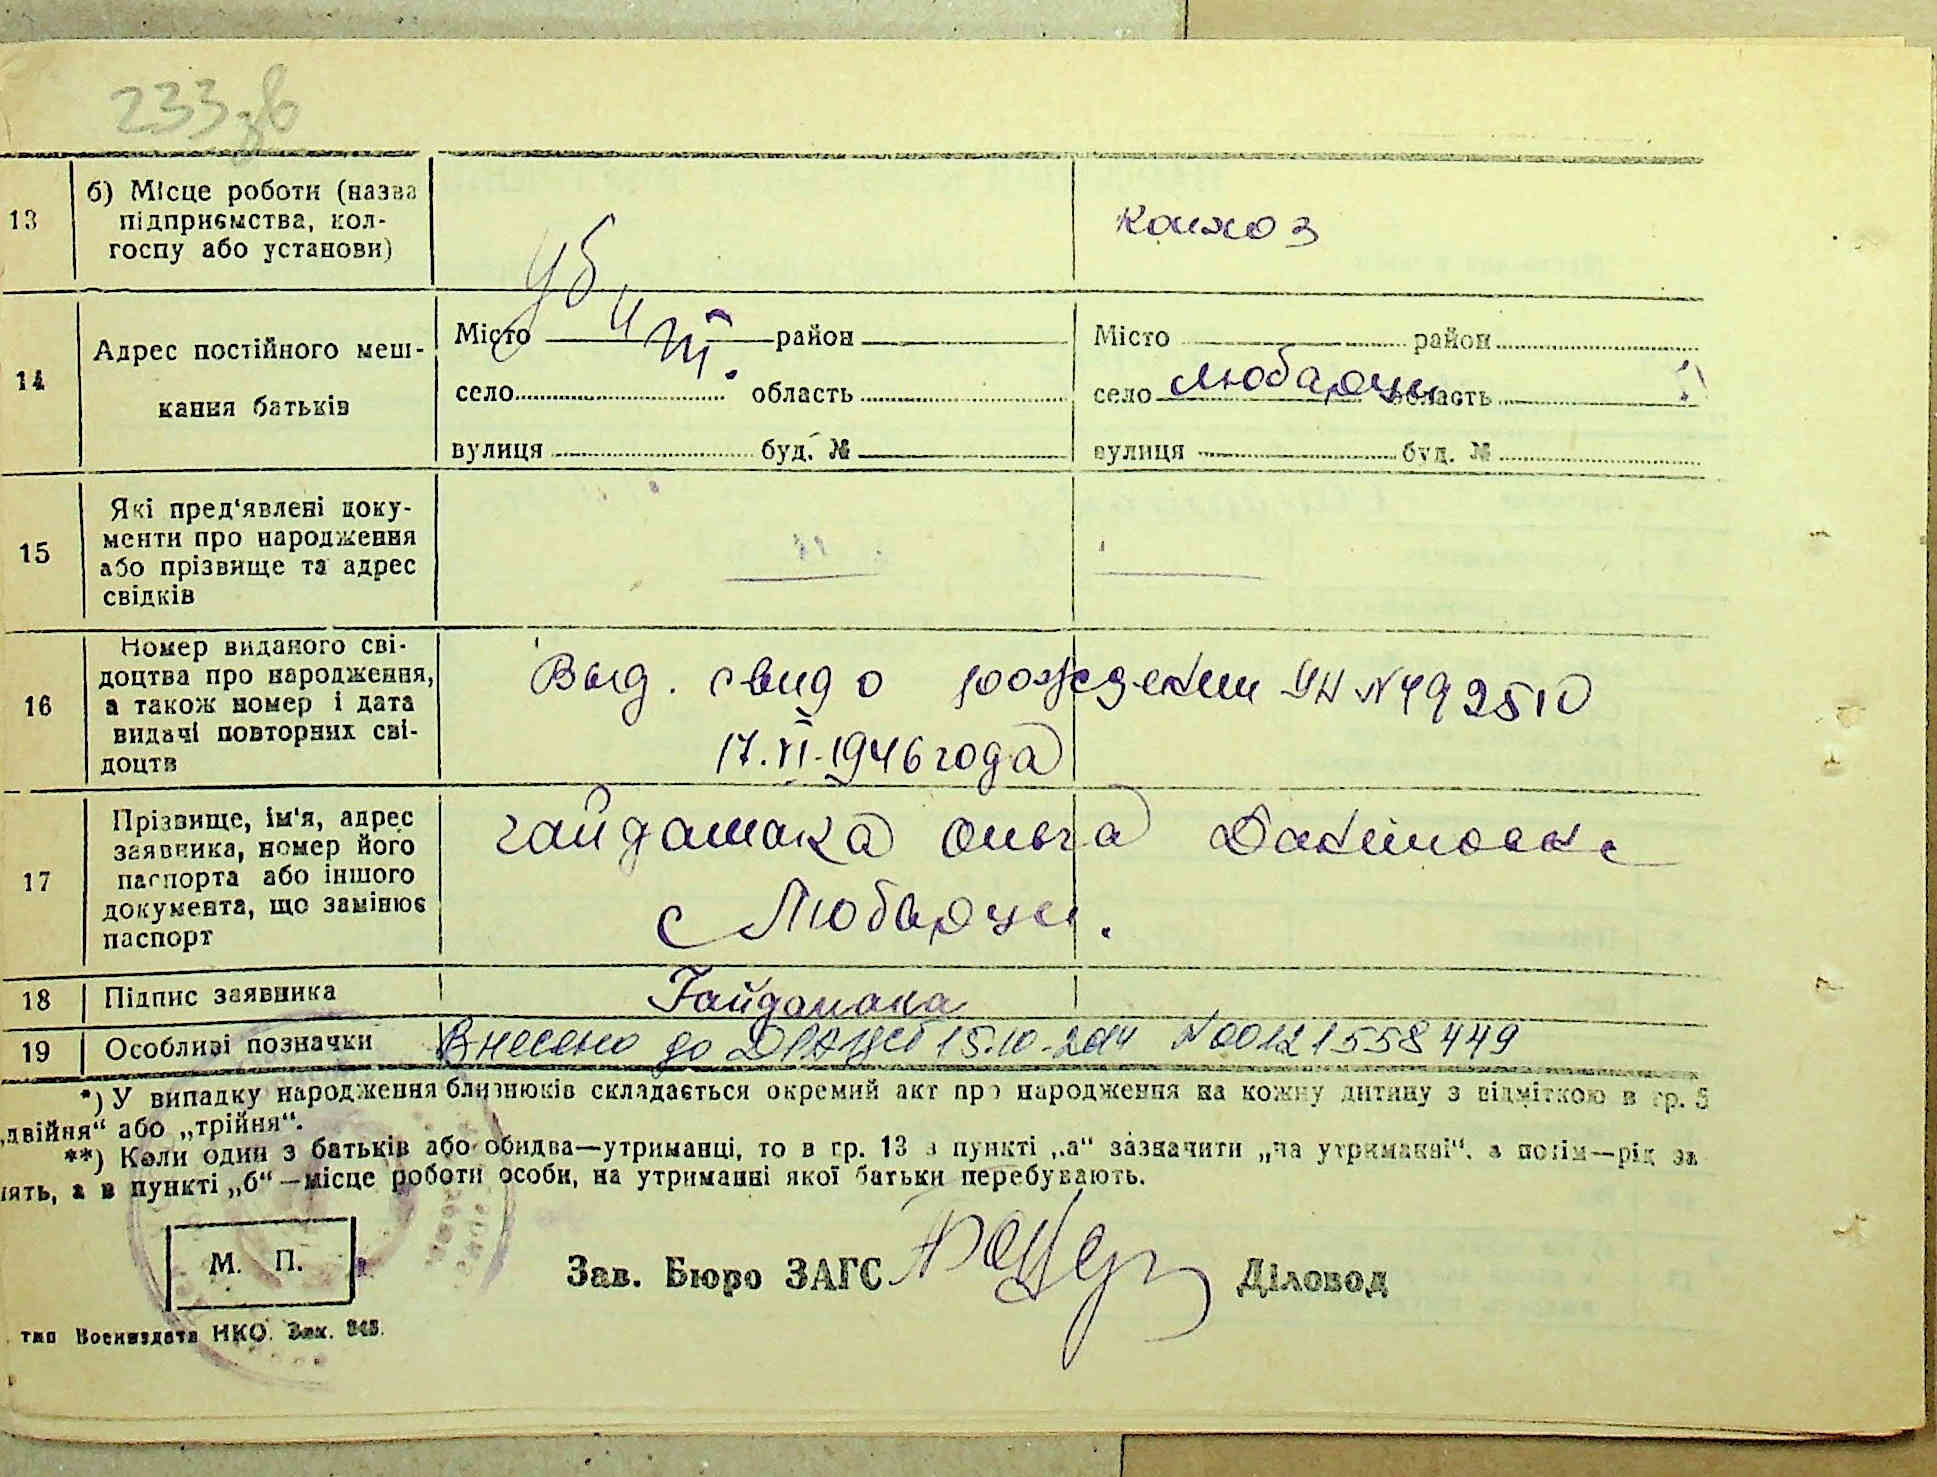 233 зв
13 б) Місце роботи (назва підприємства, колгоспу або установи)
колхоз
убит.
14 Адрес постійного мешкання батьків
Місто район
село область
вулиця буд. №
Місто район
село Любарцы область
вулиця буд. №
15 Які пред'явлені документи про народження або прізвище та адрес свідків
16 Номер виданого свідоцтва про народження, а також номер і дата видачі повторних свідоцтв
Выд. свид о рождении УН №492510
17.VI.1946 года
17 Прізвище, ім'я, адрес заявника, номер його паспорта або іншого документа, що замінює паспорт
Гайдамака Ольга
с Любарцы.
18 Підпис заявника
Гайдамака
19 Особливі позначки
Внесено до ДРАЦСГ 15.10.2014 №00121558449
*) У випадку народження близнюків складається окремий акт про народження на кожну дитину з відміткою в гр. 5
„двійня“ або „трійня“.
**) Коли один з батьків або обидва—утриманці, то в гр. 13 в пункті „а“ зазначити „на утриманні“, а потім—рід за
нять, а в пункті „б“—місце роботи особи, на утриманні якої батьки перебувають.
М. П.
Зав. Бюро ЗАГС Діловод
тип Воениздата НКО. Зак.